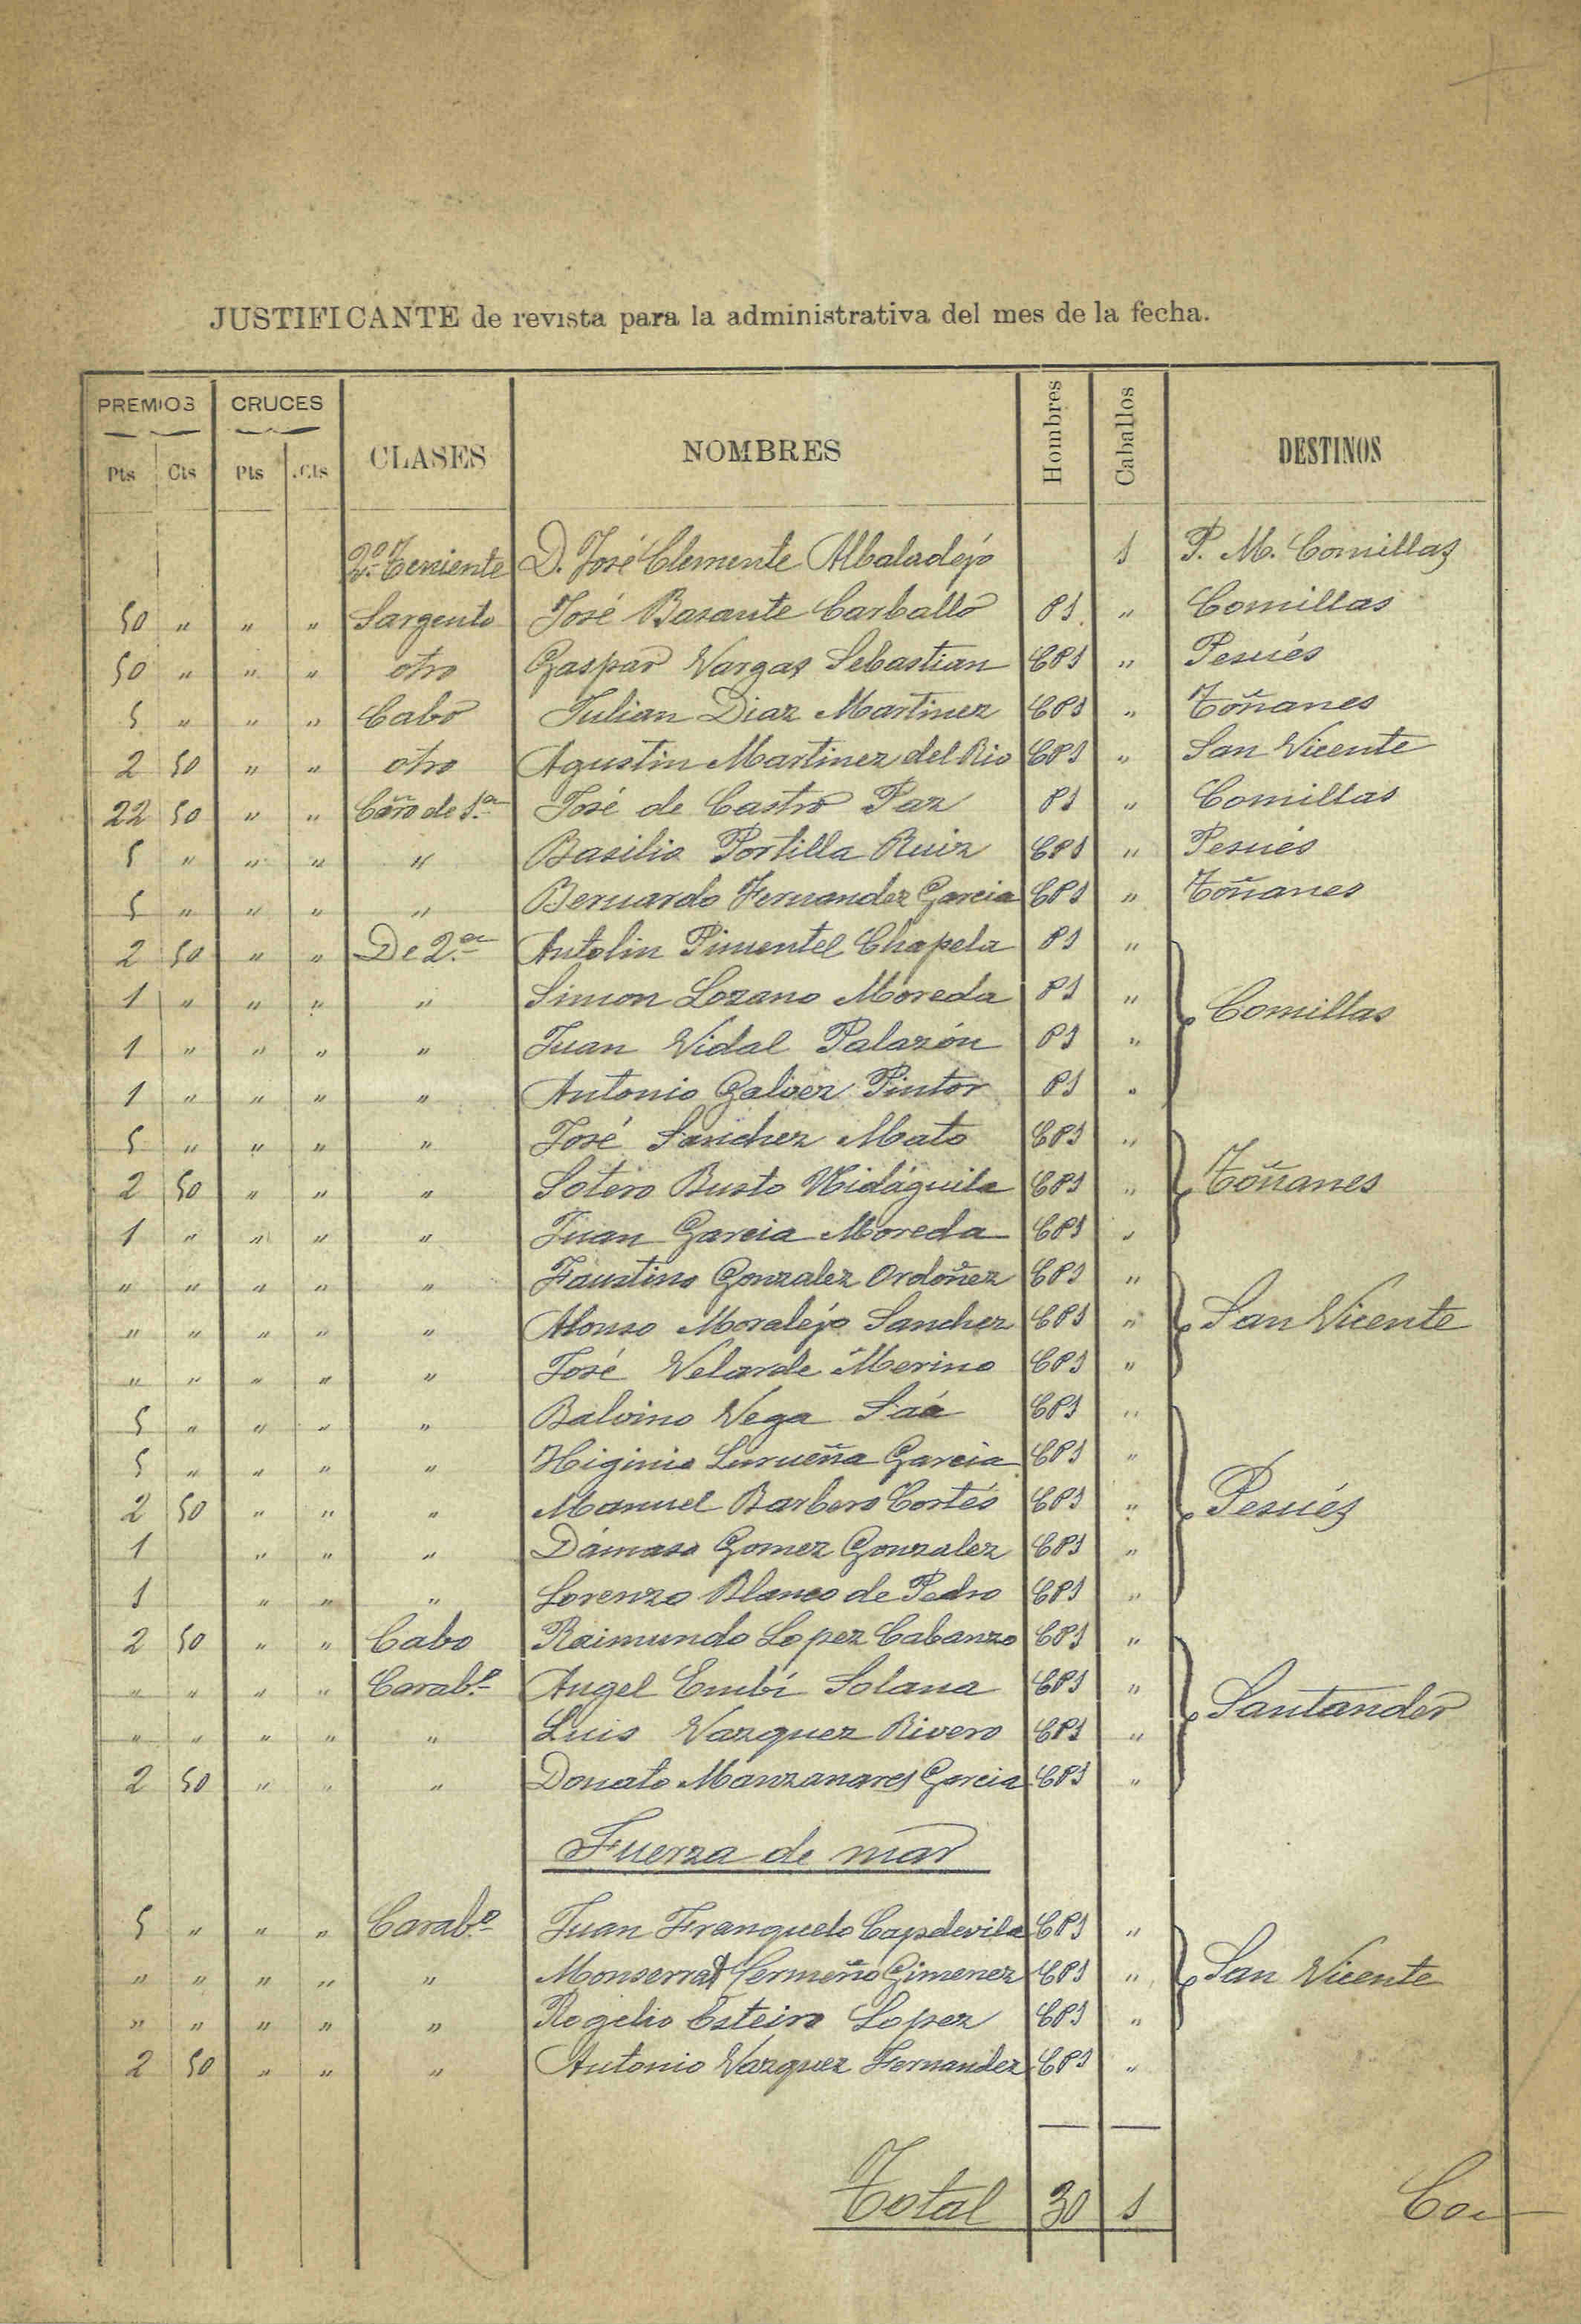 JUSTIFICANTE de revista para la administrativa del mes de la fecha.
PREMIOS CRUCES CLASES NOMBRES Hombres Caballos DESTINOS
Pts Cts Pts Cts
2º Teniente D. José Clemente Albaladéjo 1 P. M. Comillas
50 " " " Sargento José Basante Carballo P1 " Comillas
50 " " " otro Gaspar Vargas Sebastian CP1 " Pesués
5 " " " Cabo Julian Diaz Martinez CP1 " Toñanes
2 50 " " otro Agustin Martinez del Rio CP1 " San Vicente
22 50 " " Carº de 1ª José de Castro Paz P1 " Comillas
5 " " " " Basilio Portilla Ruiz CP1 " Pesués
5 " " " " Bernardo Fernandez Garcia CP1 " Toñanes
2 50 " " De 2ª Antolin Pimentel Chapela P1 "
1 " " " " Simon Lozano Moreda P1 " Comillas
1 " " " " Juan Vidal Palazón P1 "
1 " " " " Antonio Galvez Pintor P1 "
5 " " " " José Sanchez Mato CP1 "
2 50 " " " Sotero Busto Uidáguila CP1 " Toñanes
1 " " " " Juan Garcia Moreda CP1 "
" " " " " Faustino Gonzalez Ordoñez CP1 "
" " " " " Alonso Moraléjo Sanchez CP1 " San Vicente
" " " " " José Velarde Merino CP1 "
5 " " " " Balvino Vega Saá CP1 "
5 " " " " Higinio Lurueña Garcia CP1 "
2 50 " " " Manuel Barbero Cortés CP1 " Pesués
1 " " " Dámaso Gomez Gonzalez CP1 "
1 " " " Lorenzo Blanco de Pedro CP1 "
2 50 " " Cabo Raimundo Lopez Cabanzo CP1 "
" " " " Carabº Angel Embí Solana CP1 " Santander
" " " " " Luis Vazquez Rivero CP1 "
2 50 " " " Donato Manzanares Garcia CP1 "
Fuerza de mar
5 " " " Carabº Juan Franquelo Capdevila CP1 "
" " " " " Monserrat Cermeño Gimenez CP1 " San Vicente
" " " " " Rogelio Esteiro Lopez CP1 "
2 50 " " " Antonio Vazquez Fernandez CP1 "
Total 30 1